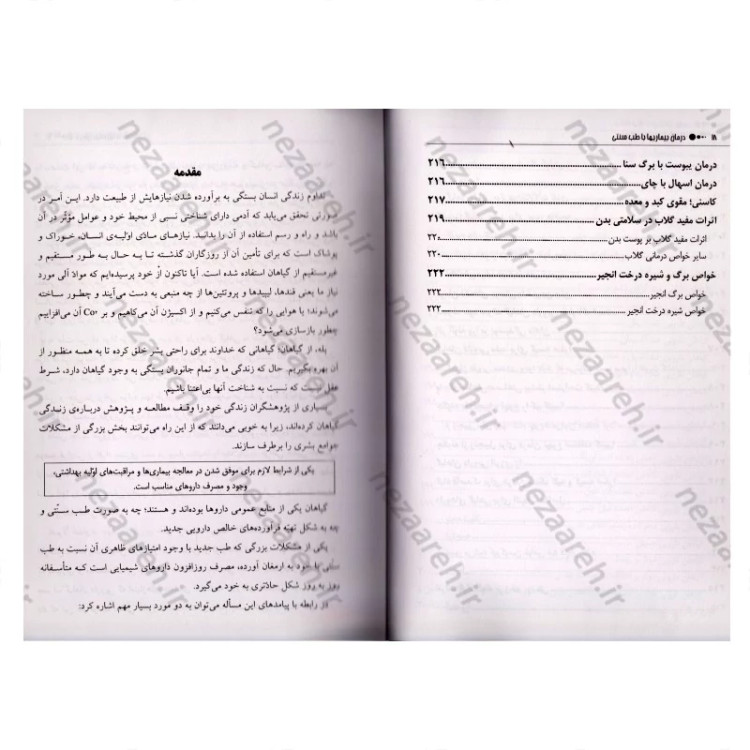 ۱۸ ●●•• درمان بیماریها با طب سنتی
درمان یبوست با برگ سنا ..... ۲۱۶
درمان اسهال با چای ..... ۲۱۶
کاسنی؛ مقوی کبد و معده ..... ۲۱۷
اثرات مفید گلاب در سلامتی بدن ..... ۲۱۹
اثرات مفید گلاب بر پوست بدن ..... ۲۲۰
سایر خواص درمانی گلاب ..... ۲۲۰
خواص برگ و شیره درخت انجیر ..... ۲۲۲
خواص برگ انجیر ..... ۲۲۲
خواص شیره درخت انجیر ..... ۲۲۲
مقدمه
تداوم زندگی انسان بستگی به برآورده شدن نیازهایش از طبیعت دارد. این امر در
صورتی تحقق می‌یابد که آدمی دارای شناختی نسبی از محیط خود و عوامل مؤثر در آن
باشد و راه و رسم استفاده از آن را بداند. نیازهای مادّی اولیه‌ی انسان، خوراک و
پوشاک است که برای تأمین آن از روزگاران گذشته تا به حال به طور مستقیم و
غیرمستقیم از گیاهان استفاده شده است. آیا تاکنون از خود پرسیده‌ایم که مواد آلی مورد
نیاز ما یعنی قندها، لیپیدها و پروتئین‌ها از چه منبعی به دست می‌آیند و چطور ساخته
می‌شوند؛ یا هوایی را که تنفس می‌کنیم و از اکسیژن آن می‌کاهیم و بر Co² آن می‌افزاییم
چطور بازسازی می‌شود؟
بله، از گیاهان؛ گیاهانی که خداوند برای راحتی بشر خلق کرده تا به همه منظور از
آن بهره بگیریم. حال که زندگی ما و تمام جانوران بستگی به وجود گیاهان دارد، شرط
عقل نیست که نسبت به شناخت آنها بی‌اعتنا باشیم.
بسیاری از پژوهشگران زندگی خود را وقف مطالعه و پژوهش درباره‌ی زندگی
گیاهان کرده‌اند، زیرا به خوبی می‌دانند که از این راه می‌توانند بخش بزرگی از مشکلات
جوامع بشری را برطرف سازند.
یکی از شرایط لازم برای موفق شدن در معالجه بیماری‌ها و مراقبت‌های اوّلیه بهداشتی،
وجود و مصرف داروهای مناسب است.
گیاهان یکی از منابع عمومی داروها بوده‌اند و هستند؛ چه به صورت طب سنّتی و
چه به شکل تهیّه فرآورده‌های خالص دارویی جدید.
یکی از مشکلات بزرگی که طب جدید با وجود امتیازهای ظاهری آن نسبت به طب
سنتی با خود به ارمغان آورده، مصرف روزافزون داروهای شیمیایی است که متأسفانه
روز به روز شکل حادّتری به خود می‌گیرد.
در رابطه با پیامدهای این مسأله می‌توان به دو مورد بسیار مهم اشاره کرد:
nezaareh.ir